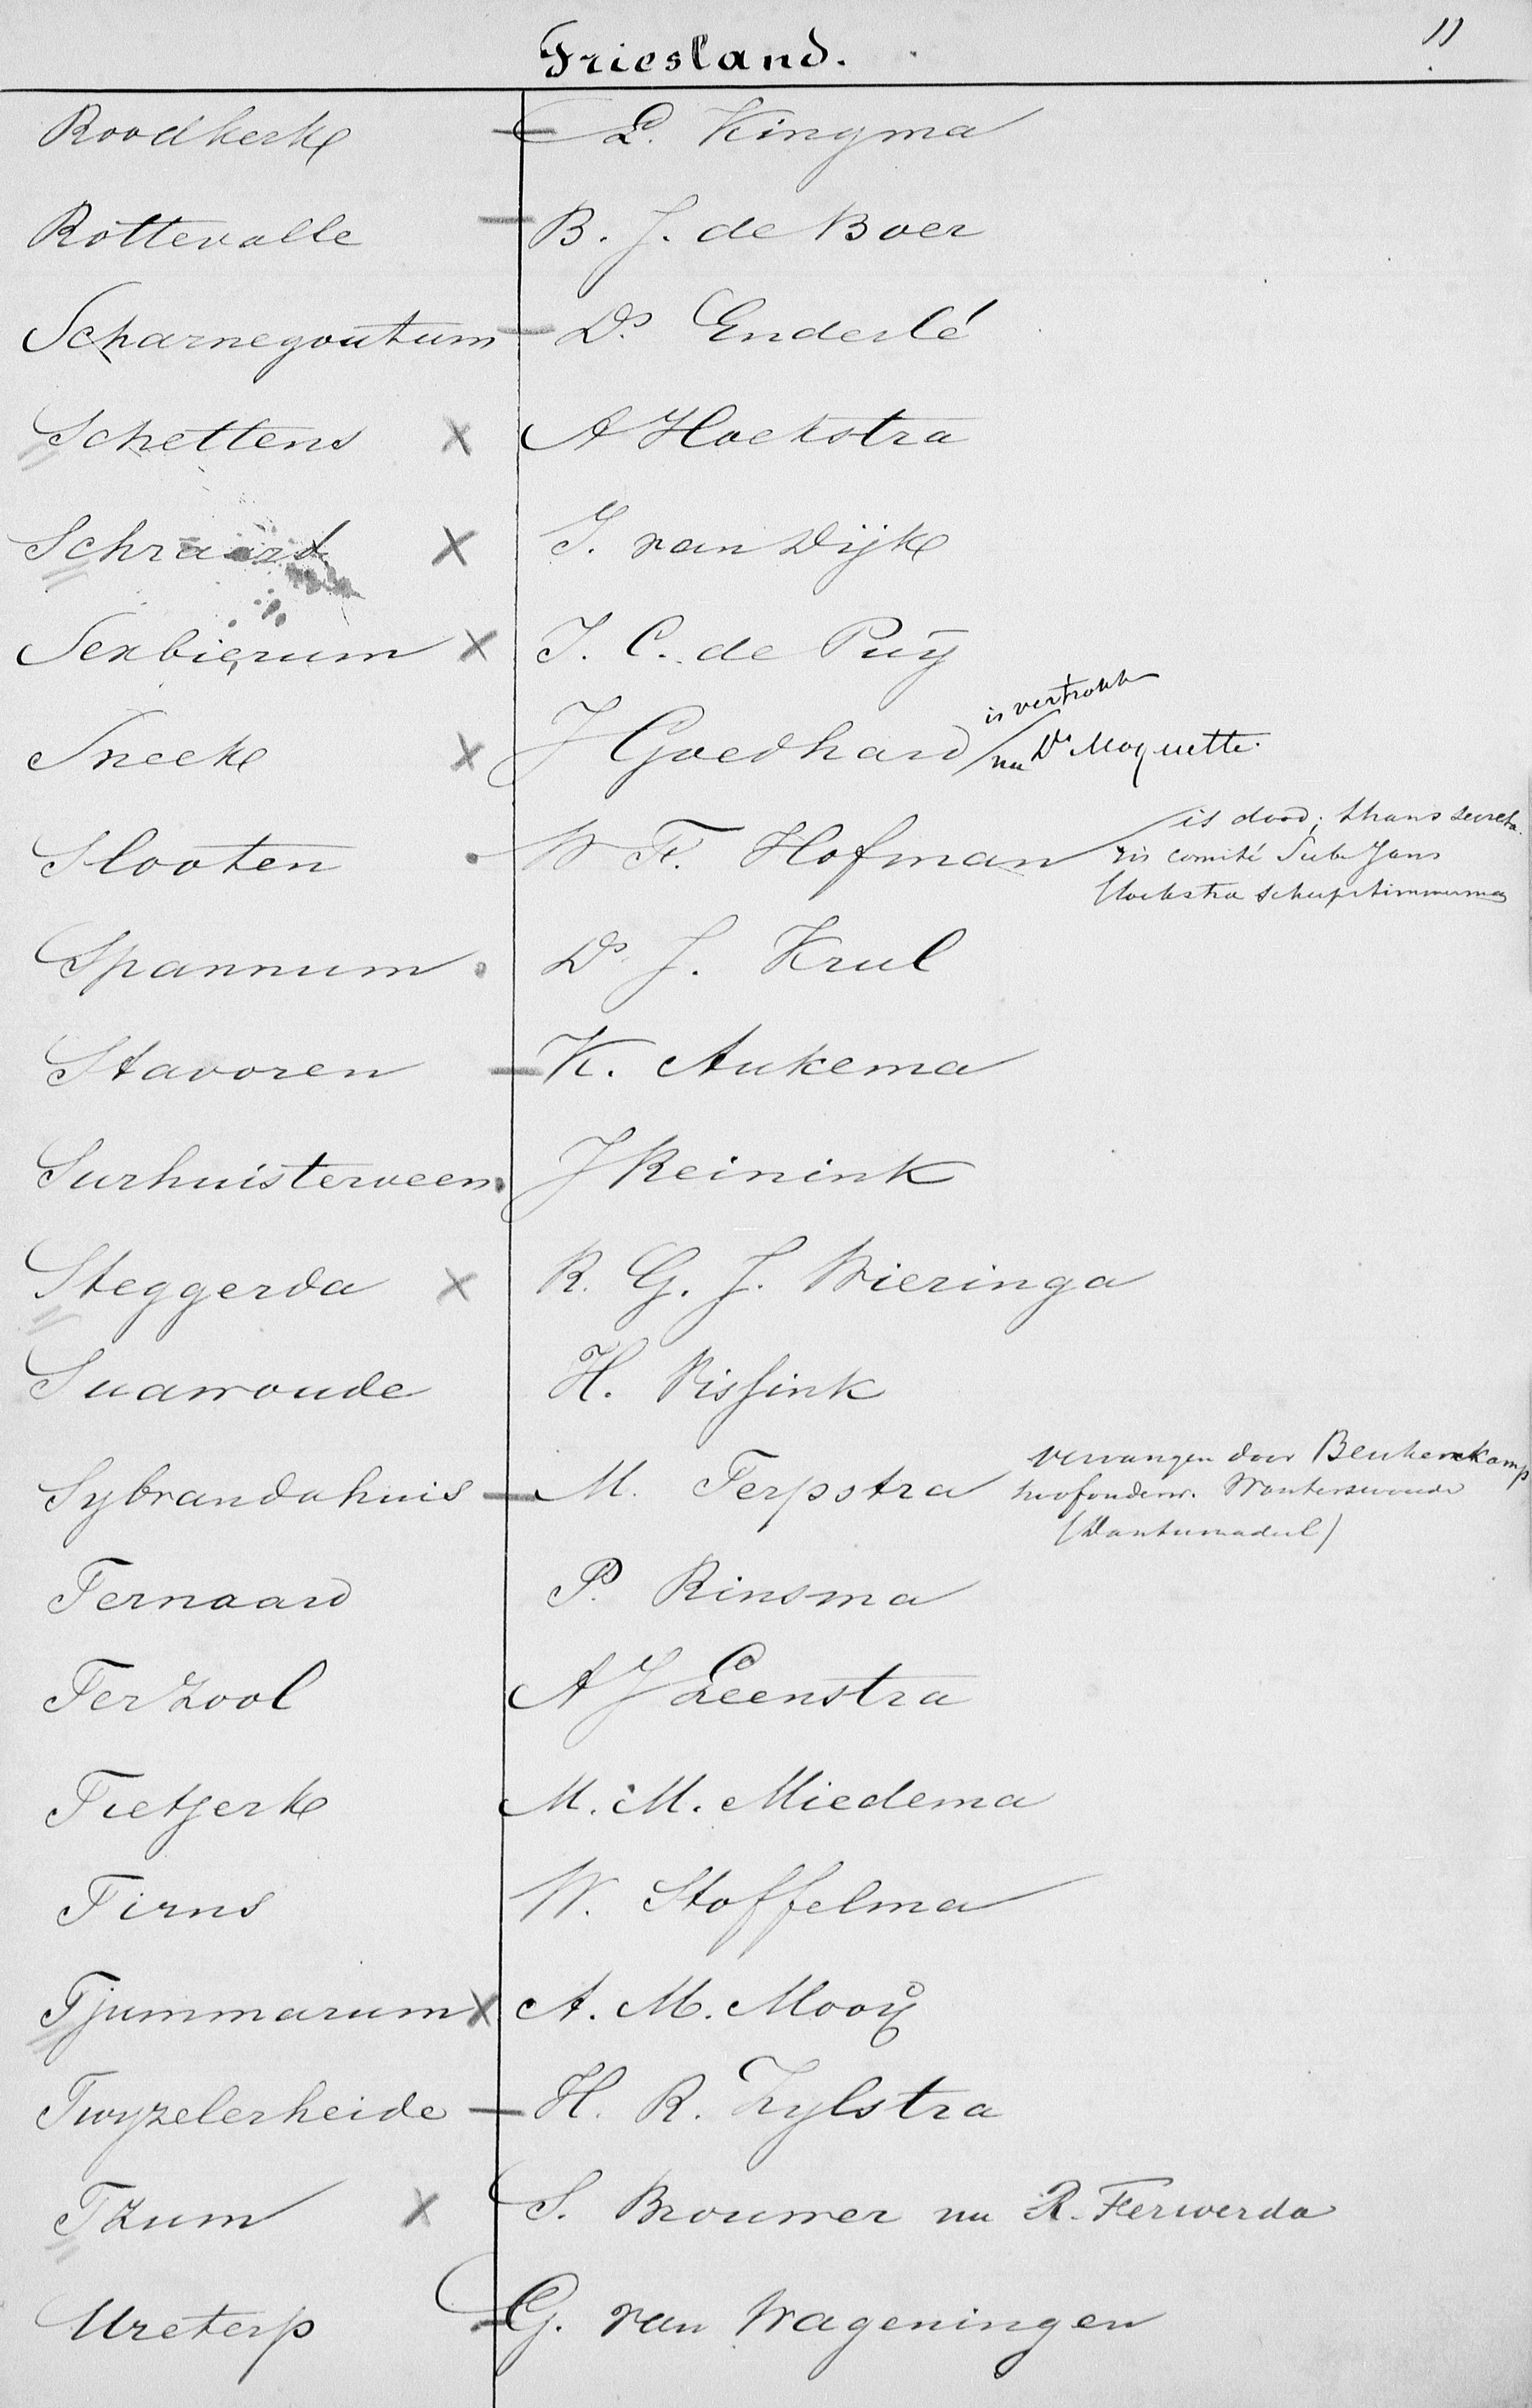 Friesland. 11
Roodkerk — L. Kingma
Rottevalle — B. J. de Boer
Scharnegoutum — Ds. Enderlé
Schettens x A Hoekstra
Schraard x J. van Dijk
Sexbierum x J. C. de Puÿ
is vertrokk
Sneek x J Goedhard / nu Ds Moquette.
is dood; thans secreta-
Slooten . W F. Hofman ris comité Jans
Hoekstra scheepstimmerman
Spannum . Ds J. Krul
Stavoren — K. Aukema
Surhuisterveen . J Reinink
Steggerda x R. G. J. Wieringa
Suawoude H. Vissink
vervangen door Beukenkamp
Sybrandahuis — M. Terpstra hoofdonderw. Wouterswoude
(Dantumadeel)
Ternaard P. Rinsma
Terzool A J Leenstra
Tietjerk M. M. Miedema
Tirns W. Stoffelma
Tjummarum x A. M. Mooij
Twyzelerheide — H. R. Zylstra
Tzum x S. Brouwer nu R. Ferwerda
Ureterp — G. van Wageningen